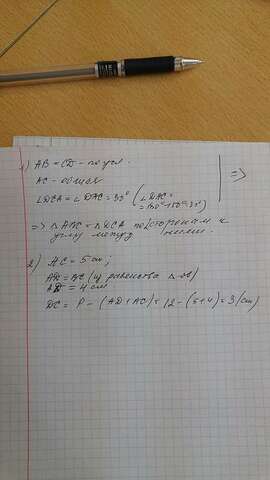 1) AB = CD - по усл.
AC - общая
∠DCA = ∠DAC = 30° (∠DAC =
= 180° - 150° = 30°)
=> △ABC = △DCA по сторонам и
углу между ними.
2) AC = 5 см;
AD = BC (из равенства △-ов)
AD = 4 см
DC = P - (AD + AC) = 12 - (5+4) = 3 (см)